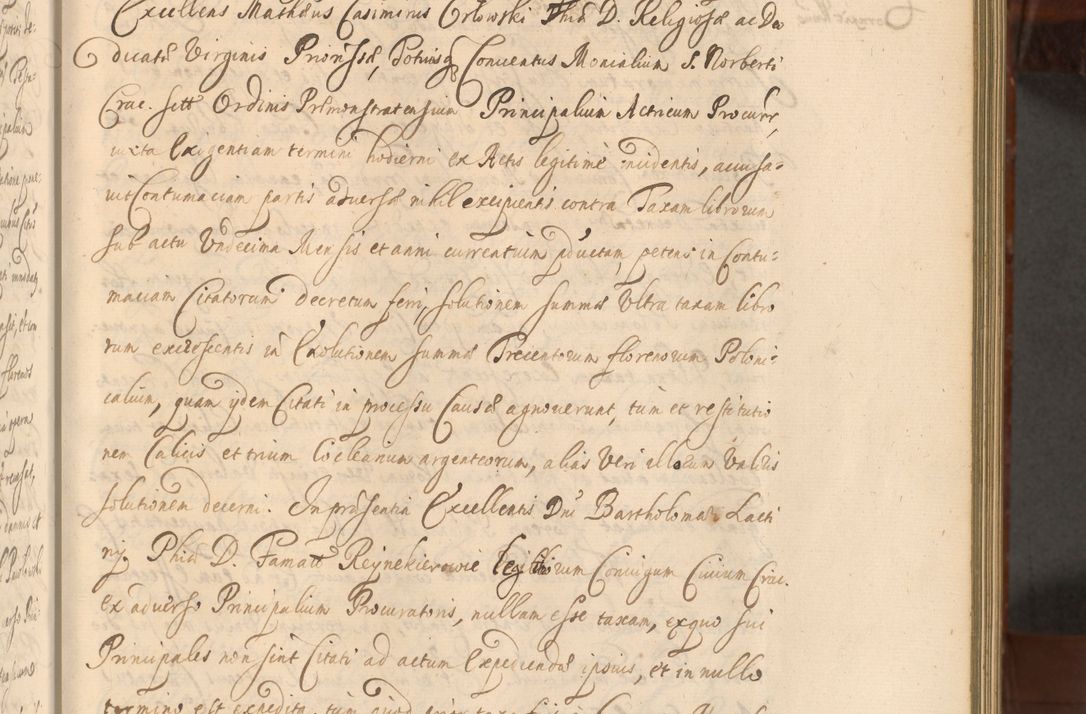 Excellens Mathæus Casimirus Orłowski Phiæ D. Religiosæ ac De
dicatæ Virginis Priorissæ, Totiusq Conuentus Monialium S. Norberti
Crac. sitt Ordinis Præmonstratensium Principalium Actricum Procurr,
iuxta Exigentiam termini hodierni ex Actis legitime incidentis, accusa-
uit Contumaciam partis aduersæ nihil excipientis contra Taxam librorum
sub actu Vndecima Mensis et anni currentium pductam, petens in Contu-
maciam Citatorum decretum feri, solutionem summæ Vltra taxam libro
rum excrescentis in Exolutionem summæ Trecentorum florenorum Poloni-
calium, quam ijdem Citati in processu Causæ agnouerunt, tum et restitutio
nem Calicis et trium Coclearium argenteorum, alias Veri illorum Valoris
solutionem decerni. In præsentia Excellentis Dni Bartholomæi Lacti
nij Phiæ D. Famatt Reynekierowie Coniugum Ciuium Crac.
ex aduerso Principalium Procuratoris, nullam esse taxam, exquo sui
Principales non sint Citati ad actum Expediendæ ipsius, et in nullo
termino est expedita, tum quod